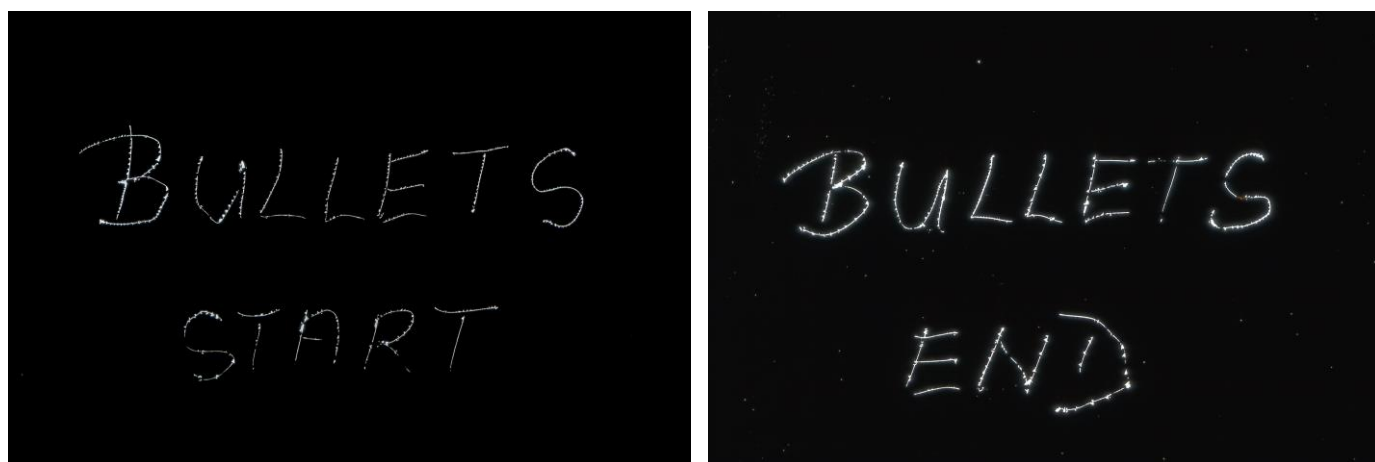 BULLETS
START
BULLETS
END